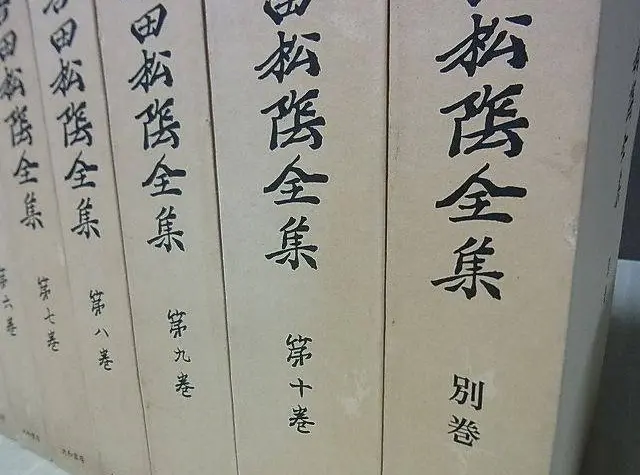 松陰全集
別巻
田松陰全集
第十巻
田松陰全集
第九巻
田松陰全集
第八巻
大和書房
田松陰全集
第七巻
大和書房
第六巻